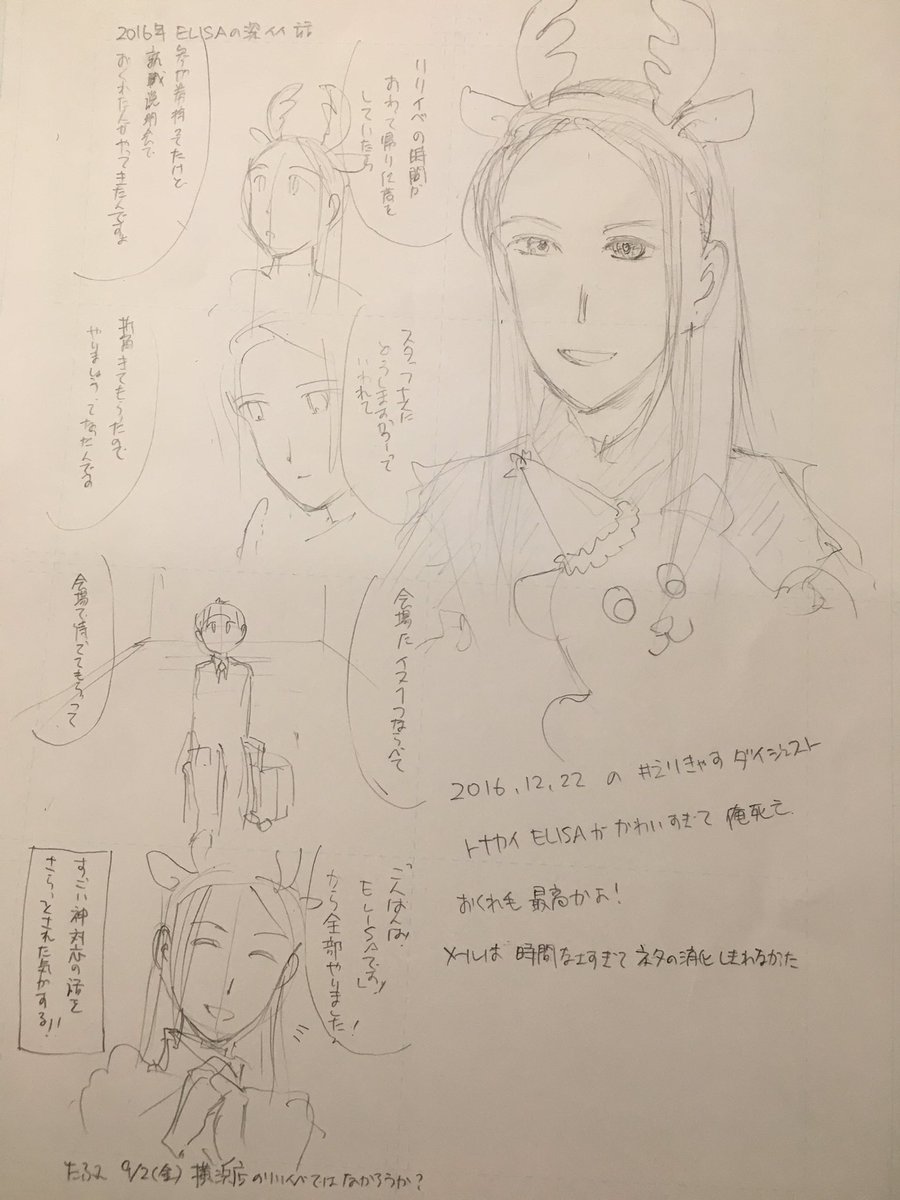 2016年 ELISAの深イイ話
リリイベの時間が
おわって帰りに着を
していたら
就職説明会で
おくれた人がやってきたんですよ
スタッフさんに
どうしますかーって
いわれて
折角きてもらったので
やりましょうってなったんです
会場にイス1つならべて
会場で待っててもらって
「こんばんは、
ELISAです!」
から全部やりました!
すごい神対応の話を
さらっとされた気がする!!
2016.12.22 の #えりきゃす ダイジェスト
トナカイ ELISAが かわいすぎて 俺死亡
おくれ毛 最高かよ!
メールは 時間なさすぎて ネタの消化 しきれなかった
たぶん 9/2(金) 横浜店のリリイベではなかろうか?